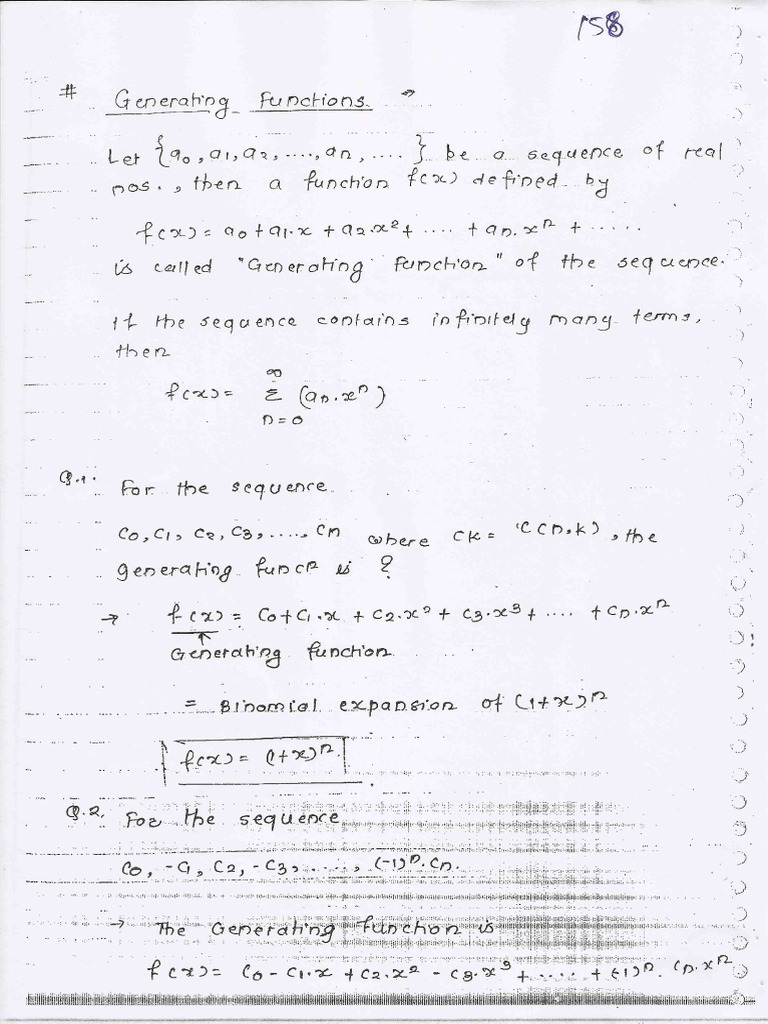 158
# Generating Functions →
Let {a0, a1, a2, ...., an, ....} be a sequence of real
nos., then a function f(x) defined by
f(x) = a0 + a1.x + a2.x² + .... + an.xⁿ + ......
is called "Generating function" of the sequence.
If the sequence contains infinitely many terms,
then
∞
f(x) = Σ (an.xⁿ)
n=0
Q.1. For the sequence
C0, C1, C2, C3, ...., Cn where Ck = C(n,k), the
generating funcⁿ is ?
→ f(x) = C0 + C1.x + C2.x² + C3.x³ + .... + Cn.xⁿ
↑
Generating function
= Binomial expansion of (1+x)ⁿ
f(x) = (1+x)ⁿ.
Q.2. For the sequence
C0, -C1, C2, -C3, ....., (-1)ⁿ.Cn.
→ The Generating function is
f(x) = C0 - C1.x + C2.x² - C3.x³ + ..... + (-1)ⁿ. Cn.xⁿ